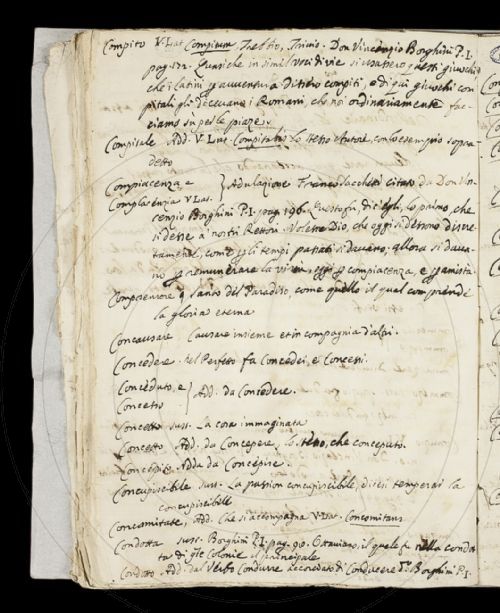 Compito V. Lat. Compitum Trebbio, Trivio. Don Vincenzio Borghini P. I.
pag. 172. Quasiche in simil voci di vie si usassero questi giuochi
che i latini p avventura dissero compiti, e di qui giuochi com
pitali gli dicevano i Romani, che noi ordinariamente fac
ciamo su p le piaze.
Compitale Add. V. Lat. Compitalis lo stesso Autore, con lo esempio sopra
detto
Compiacenza e
Complacenzia V. Lat. } Adulazione Franco Sacchetti citato da Don Vin
cenzio Borghini P. I. pag. 196. Questo fu, dic'egli, lo primo, che
si desse a' nostri Rettori. Volesse Dio, che oggi si dessono discre
tamente, come p gli tempi passati si davano; allora si dava
no p remunerare la virtù, oggi p compiacenza, e p amista
Comprensore q Santo del Paradiso, come quello il qual comprende
la gloria eterna
Concausare Causare insieme et in compagnia d'altri.
Concedere. nel Perfetto fa Concedei, e Concessi.
Conceduto, e
Concesso } Add. da Concedere.
Concetto sust. La cosa immaginata
Concetto Add. da Concepere, lo stesso, che conceputo.
Concepito Add. da Concepire.
Concupiscibile sust. La passion concupiscibile, dicesi temperar la
concupiscibile
Concomitate, Add. Che si accompagna V. Lat. Concomitans
Condotta sust. Borghini P. I. pag. 90. Ottaviano, il quale fu nella condot
ta di qte Colonie il principale
Condotto Add. dal Verbo Condurre Borghini P. I.